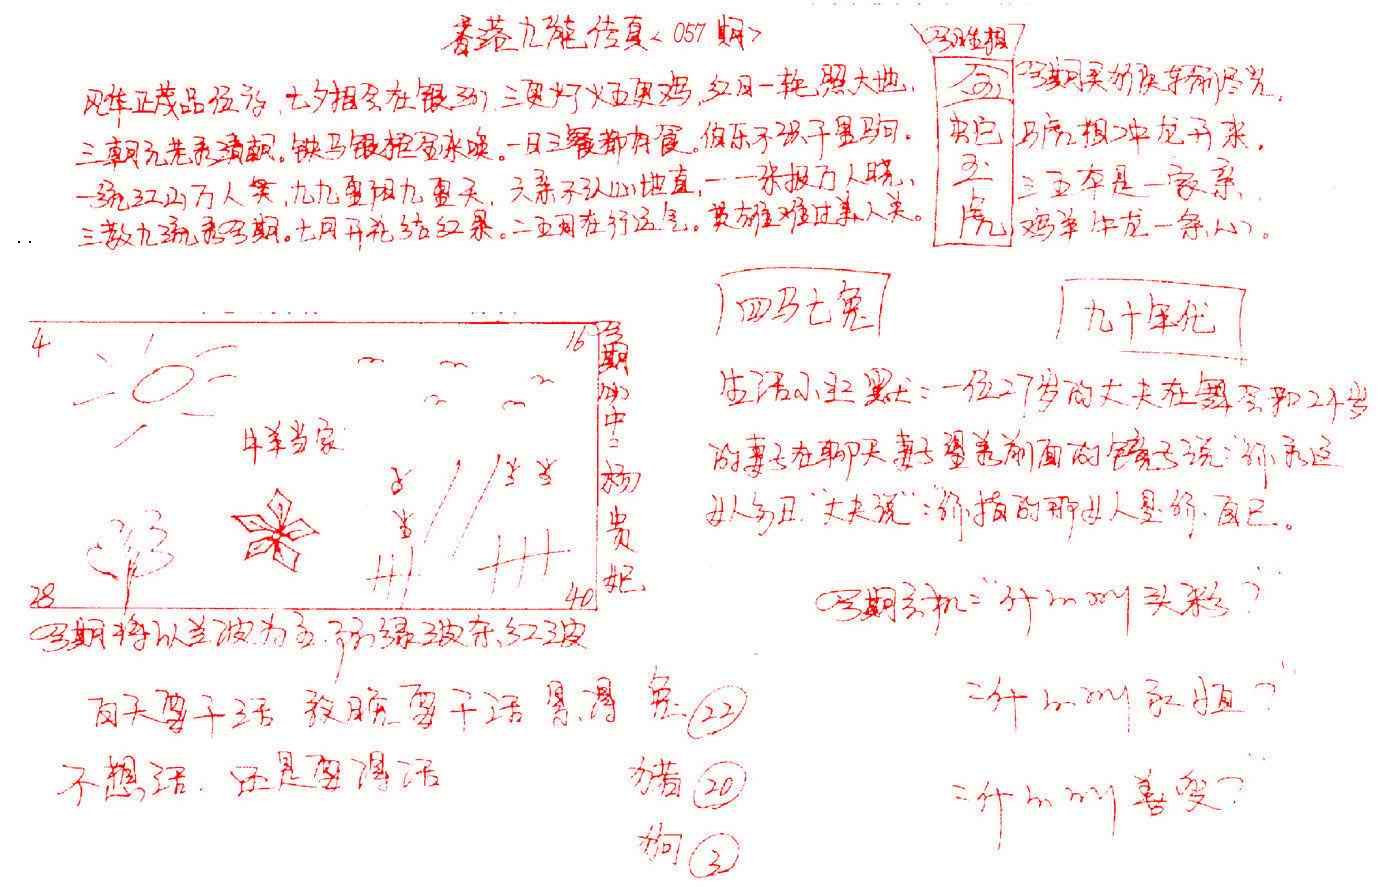 香港九龙传真<057期>
今期生相
风华正茂品位高,七夕相会在银河,三更灯火五更鸡,红日一轮照大地,
三朝元老看清朝。铁马银枪金水唤。一日三餐都有食。伯乐不识千里马。
一统江山万人笑,九九重阳九重天,六亲不认心地直,一一张报万人晓,
三教九流看今期。七月开花结红果。二五月在行运气。英雄难过美人关。
蛇
五
虎
马虎相冲龙开来,
三五本是一家亲,
鸡羊牛龙一条心。
四马七兔
九十年代
4
16
牛羊当家
28
40
今期必中:杨贵妃
今期将以兰波为主,防绿波存红波
生活小幽默:一位27岁的丈夫在舞会和24岁
的妻子在聊天妻子望着前面的镜子说:你看这
女人多丑"丈夫说":你指的那女人是你自己。
今期玄机:"什么叫头彩?"
:什么叫永恒?"
:什么叫善变?"
白天要干活 夜晚要干活 兔 22
不想活.还是要得活 猪 20
狗 3